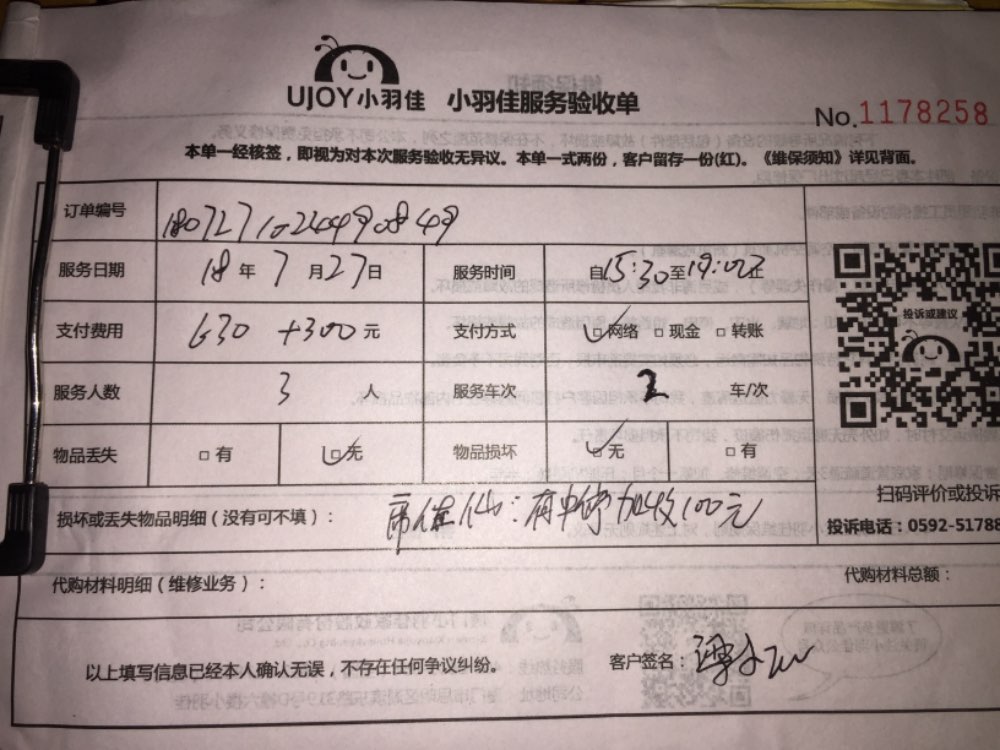 UJOY小羽佳 小羽佳服务验收单
No.1178258
本单一经核签，即视为对本次服务验收无异议。本单一式两份，客户留存一份(红)。《维保须知》详见背面。
订单编号
服务日期 18 年 7 月 27 日 服务时间 自15:20至19:02止
支付费用 630 +300 元 支付方式 网络 □ 现金 □ 转账
服务人数 3 人 服务车次 2 车/次
物品丢失 □ 有 无 物品损坏 无 □ 有
投诉或建议
扫码评价或投诉
投诉电话：0592-51788
损坏或丢失物品明细（没有可不填）： 加收100元
代购材料明细（维修业务）： 代购材料总额：
以上填写信息已经本人确认无误，不存在任何争议纠纷。 客户签名：